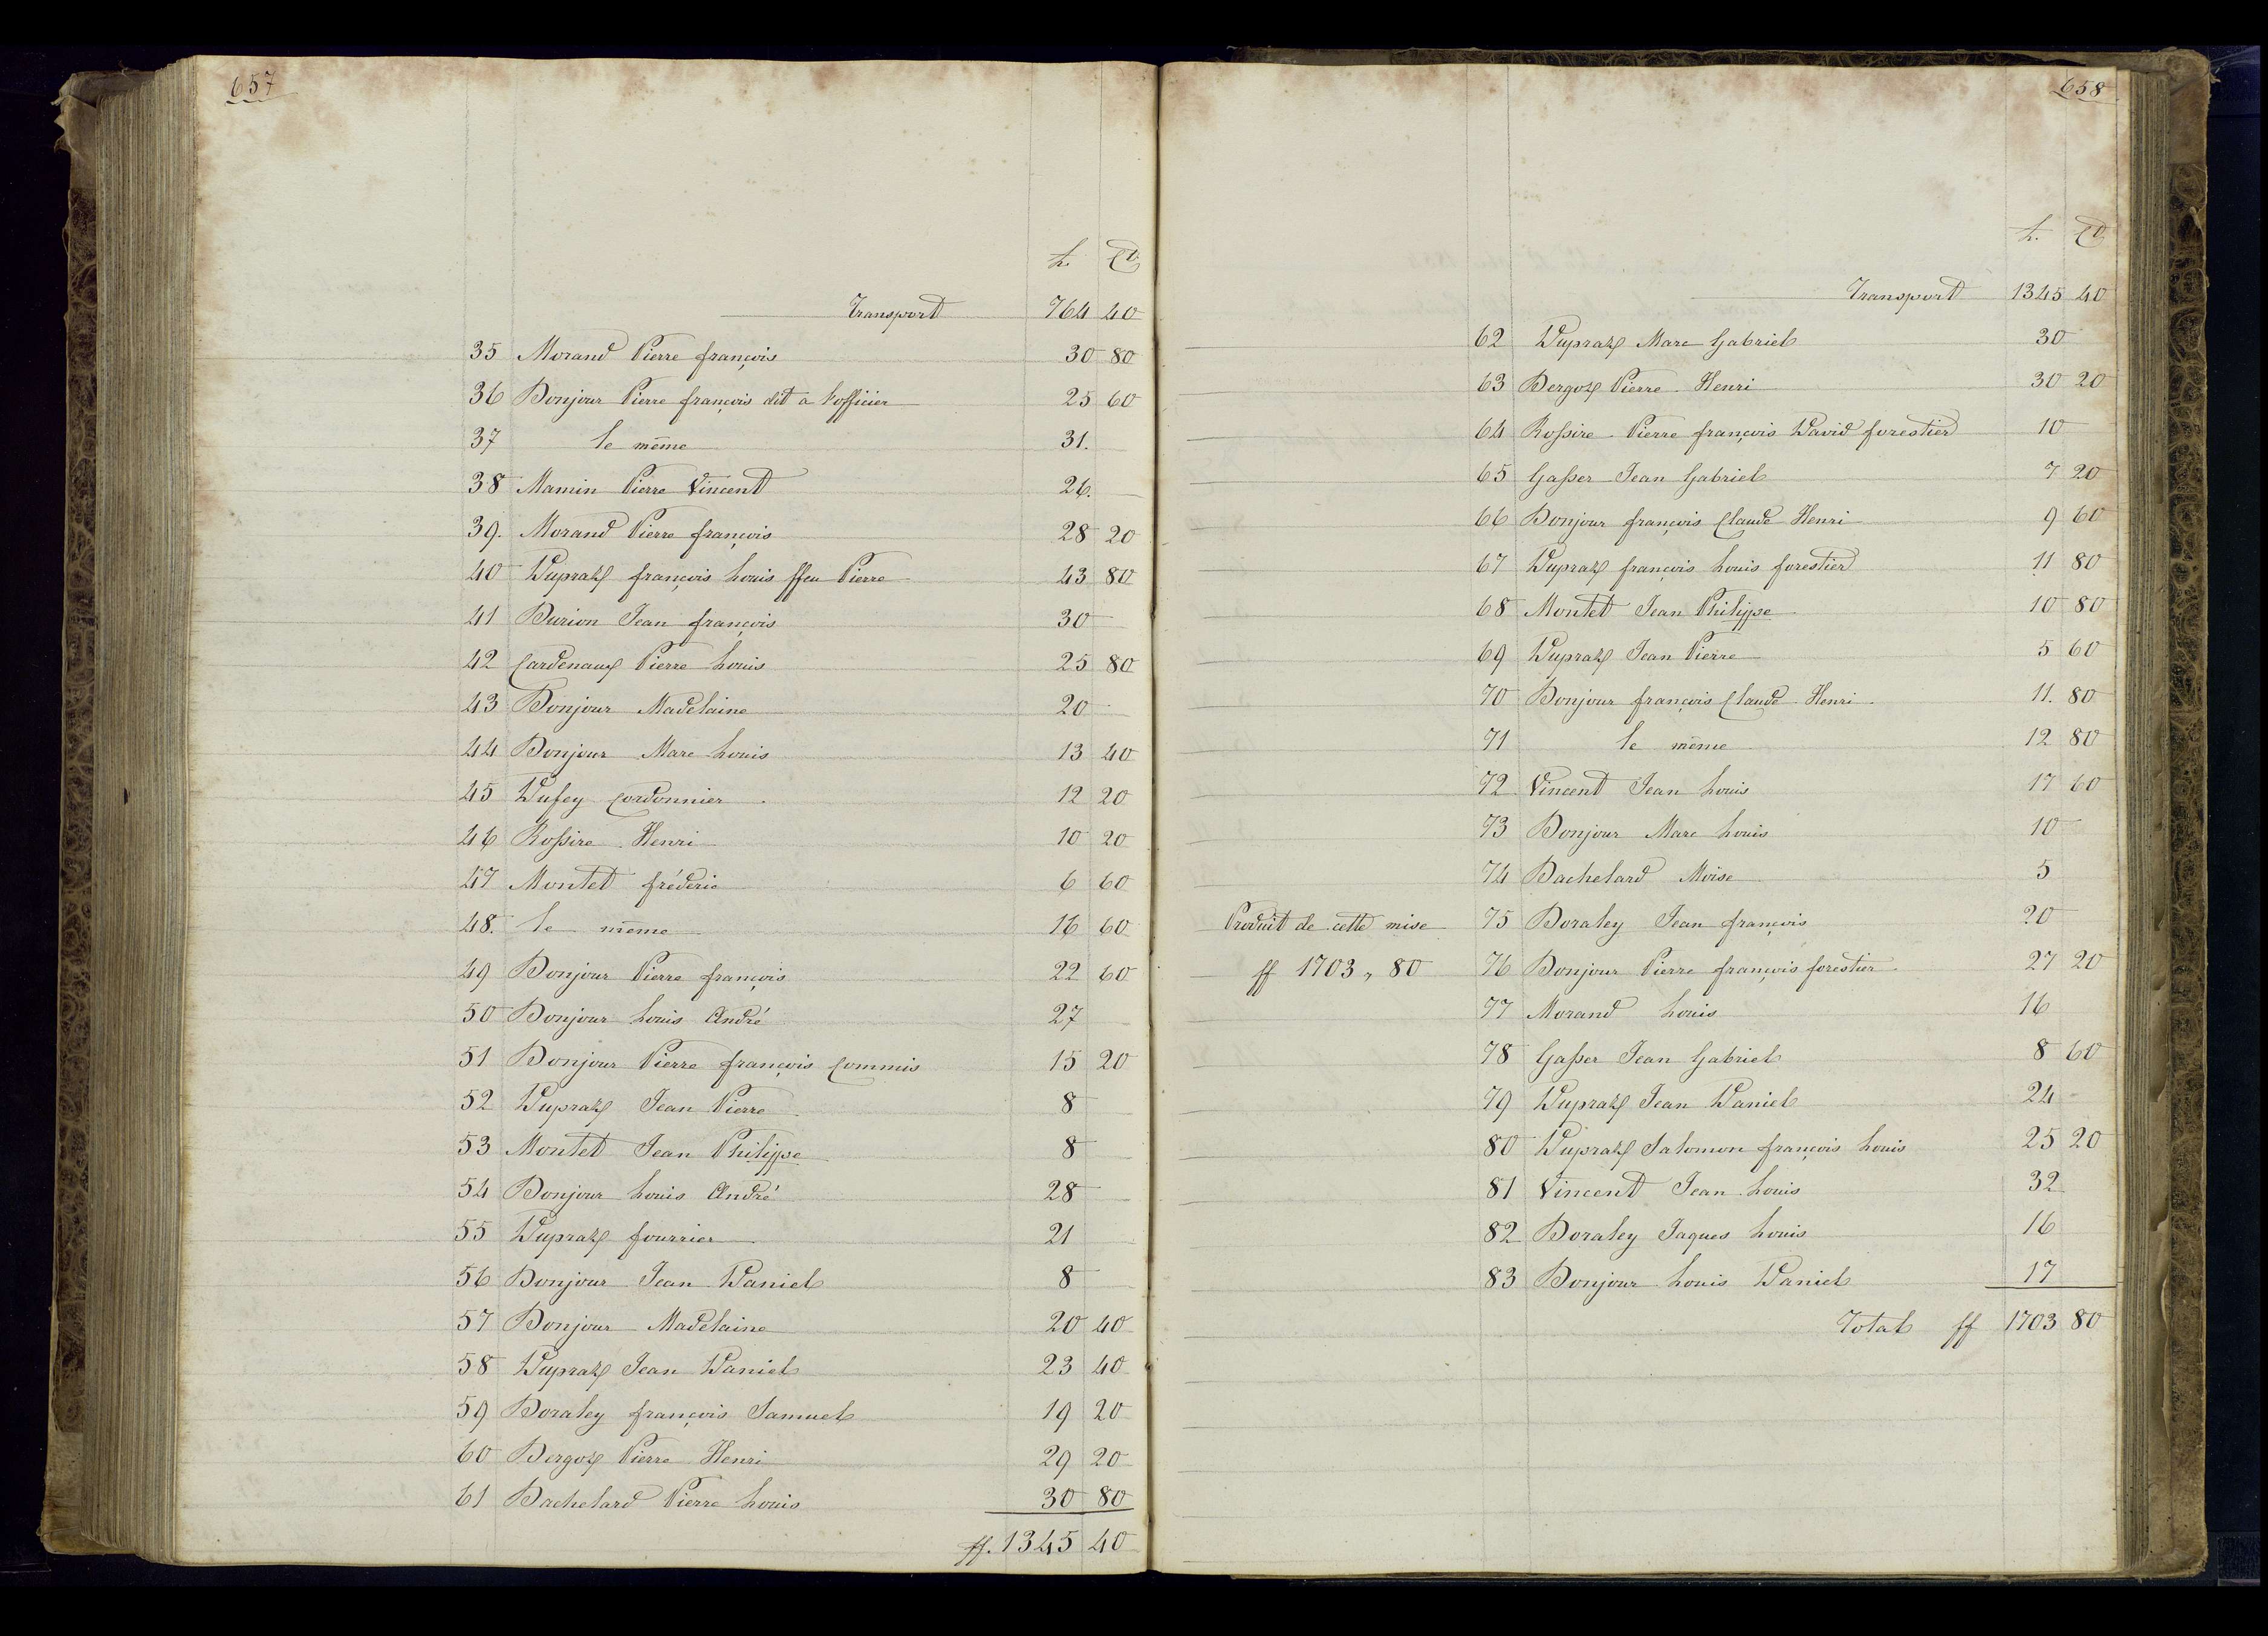 657
f. Ct
Transport 764 40
35 Morand Pierre françois 30 80
36 Bonjour Pierre françois dit a l'officier 25 60
37 le même 31.
38 Mamin Pierre Vincent 26.
39. Morand Pierre françois 28 20
40 Dupraz françois Louis ffeu Pierre 43 80
41 Burion Jean françois 30
42 Cardenaux Pierre Louis 25 80
43 Bonjour Madelaine 20
44 Bonjour Marc Louis 13 40
45 Dufey Cordonnier 12 20
46 Rossire Henri 10 20
47 Montet fréderic 6 60
48. le même 16 60
49 Bonjour Pierre françois 22 60
50 Bonjour Louis André 27
51 Bonjour Pierre françois Commis 15 20
52 Dupraz Jean Pierre 8
53 Montet Jean Philippe 8
54 Bonjour Louis André 28
55 Dupraz fourrier 21
56 Bonjour Jean Daniel 8
57 Bonjour Madelaine 20 40
58 Dupraz Jean Daniel 23 40
59 Doraley françois Samuel 19 20
60 Bergoz Pierre Henri 29 20
61 Bachelard Pierre Louis 30 80
ff. 1345 40
658
f. Ct
Transport 1345 40
62 Dupraz Marc Gabriel 30
63 Bergoz Pierre Henri 30 20
64 Rossire Pierre françois David forestier 10
65 Gasser Jean Gabriel 7 20
66 Bonjour françois Claude Henri 9 60
67 Dupraz françois Louis forestier 11 80
68 Montet Jean Philippe 10 80
69 Dupraz Jean Pierre 5 60
70 Bonjour françois Claude Henri 11. 80
71 le même 12 80
72 Vincent Jean Louis 17 60
73 Bonjour Marc Louis 10
74 Bachelard Moise 5
Produit de cette mise 75 Doraley Jean françois 20
ff 1703, 80 76 Bonjour Pierre françois forestier 27 20
77 Morand Louis 16
78 Gasser Jean Gabriel 8 60
79 Dupraz Jean Daniel 24
80 Dupraz Salomon françois Louis 25 20
81 Vincent Jean Louis 32
82 Doraley Jaques Louis 16
83 Bonjour Louis Daniel 17
Total ff 1703 80